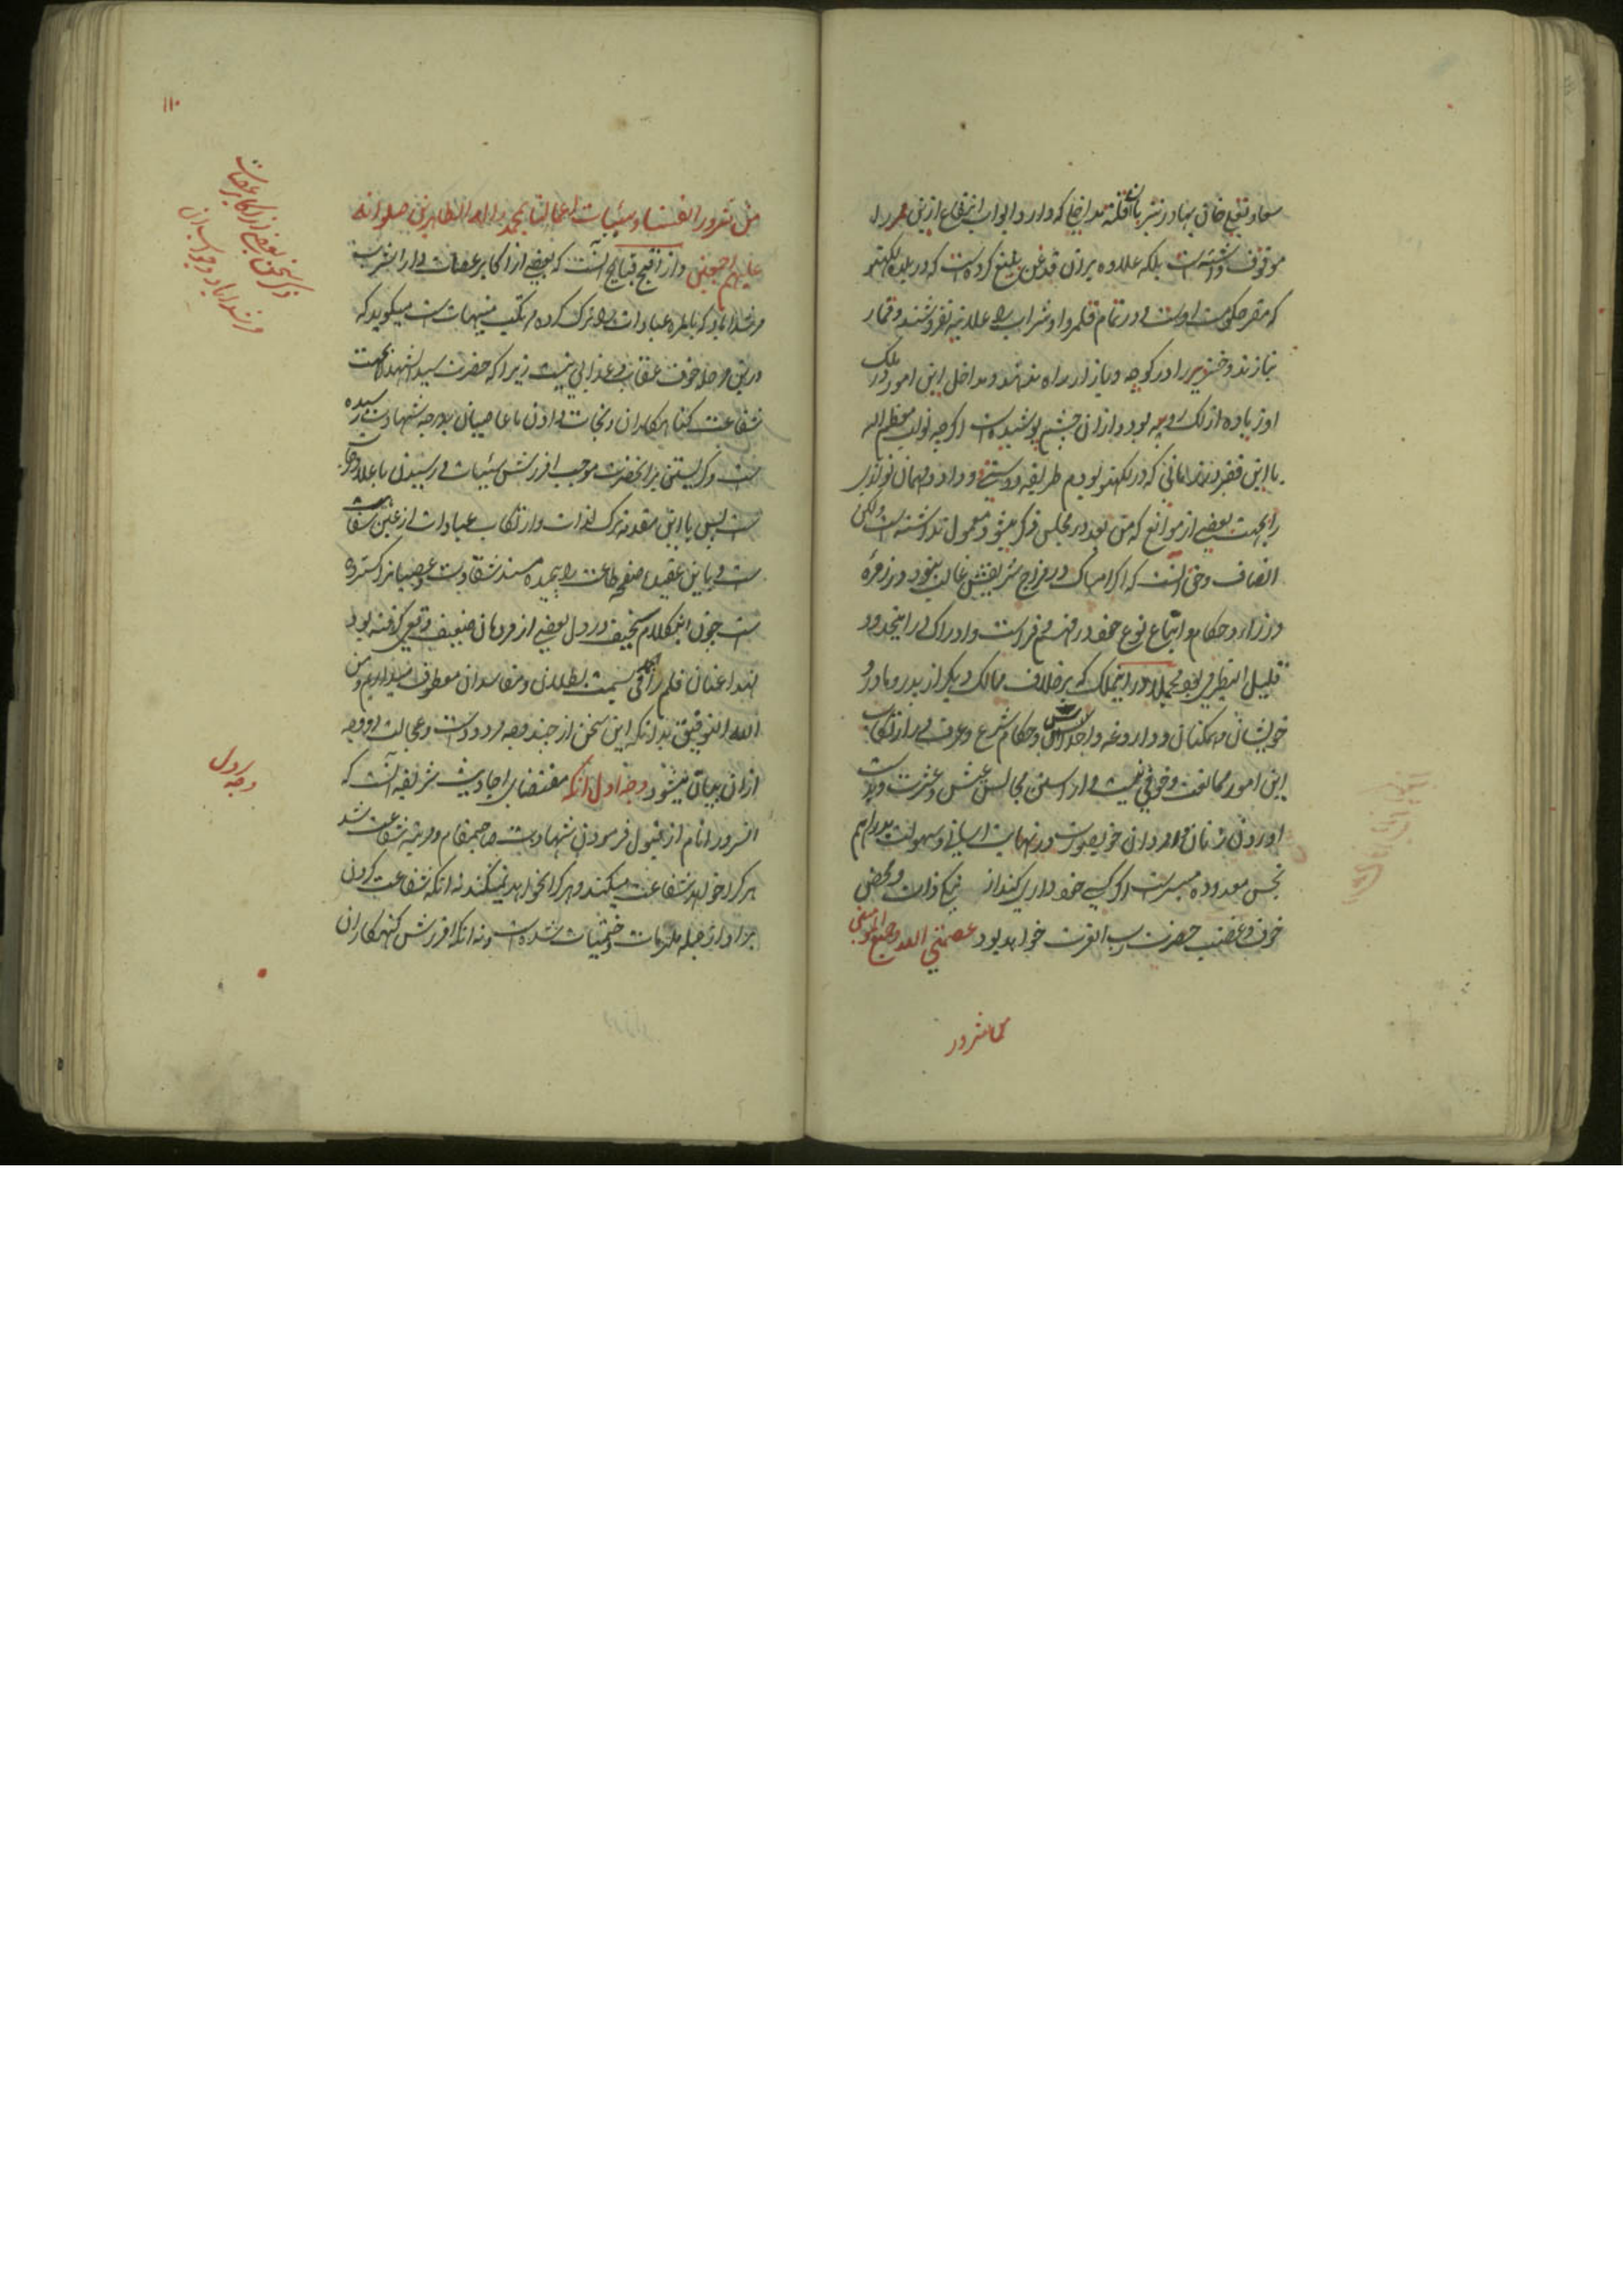 موقوف داشته است بلکه علاوه بر آن قدغن بلیغ کرده است که در بلده لکهنو
که مقر حکومت اوست و در تمام قلمرو او شراب را علانیه نفروشند و قمار
نبازند و خنزیر را در کوچه و بازار راه ندهند و مداخل این امور در ملک
او زیاده از لک روپیه بود و از آن چشم پوشیده است اگرچه نواب معظم الیه
با این فقیر در زمانی که در لکهنو بودم طریقه دوستی و وداد و مهمان نوازی
را بجهت بعضی از موانع که من بعد در مجلس ذکر میشود معمول نداشته است ولکن
انصاف و حق آنست که اگر امساک در مزاج شریفش غالب نبود در زمره
وزراء و حکام و اجتماع نوع خود در فهم و فراست و ادراک در اینحدود
قلیل النظیر می بود مجملا در این ملک که بر خلاف ممالک دیگر از پدر و مادر و
خویشان و همگنان و داروغه و احداس و حکام شرع و عرف در ارتکاب
این امور ممانعت و خوفی نیست و اراستن مجالس عیش و عشرت و بدست
اوردن زنان و امردان خوبصورت در نهایت اسانی و سهولت بدراهم
بخس معدوده میسر است اگر کسی خود داری کند از نیکی ذات و محض
خوف و غضب حضرت رب العزت خواهد بود عصمنی الله وجمیع المومنین
من شرور
من شرور انفسنا و سیئات اعمالنا بمحمد و اله الطاهرین صلواته
علیهم اجمعین و از اقبح قبایح آنست که بعضی از اکابر عصات دار الشرب
مرشداباد که بالمره عبادات را ترک کرده مرتکب منهیات است میگوید که
در این مرحله خوف عقاب و عذابی نیست زیرا که حضرت سید الشهداء بجهت
شفاعت گناهکاران و نجات دادن ما عاصیان بدرجه شهادت رسیده
است و گریستن بر آنحضرت موجب آمرزش سیئات و رسیدن باعلا درجات
است پس با این مقدمه ترک لذات و ارتکاب عبادات از عین سفاهت
است و باین عقیده صفحه طاعت را پیچیده مسند شقاوت و عصیانرا گسترده
است چون اینکلام سخیف در دل بعضی از مردمان ضعیف وقعی گرفته بود
لهذا عنان قلم را بسمت بطلان و مفاسد آن معطوف میداریم و من
الله التوفیق بدانکه این سخن از چند وجه مردود است و عجالت دو وجه
از آن بیان میشود وجه اول آنکه مقتضای احادیث شریفه آنست که
آنسرور انام از قبول فرمودن شهادت صاحبمقام و مرتبه شفاعت شد
هر کرا خواهد شفاعت میکند و هر کرا نخواهد نمیکند نه آنکه شفاعت کردن
بر او از جمله ملزمات و حتمیات شده است و نه آنکه آمرزش گنهکاران
۱۱۰
ذکر سخن بعضی از اکابر عصات
مرشداباد و جواب آن
وجه اول